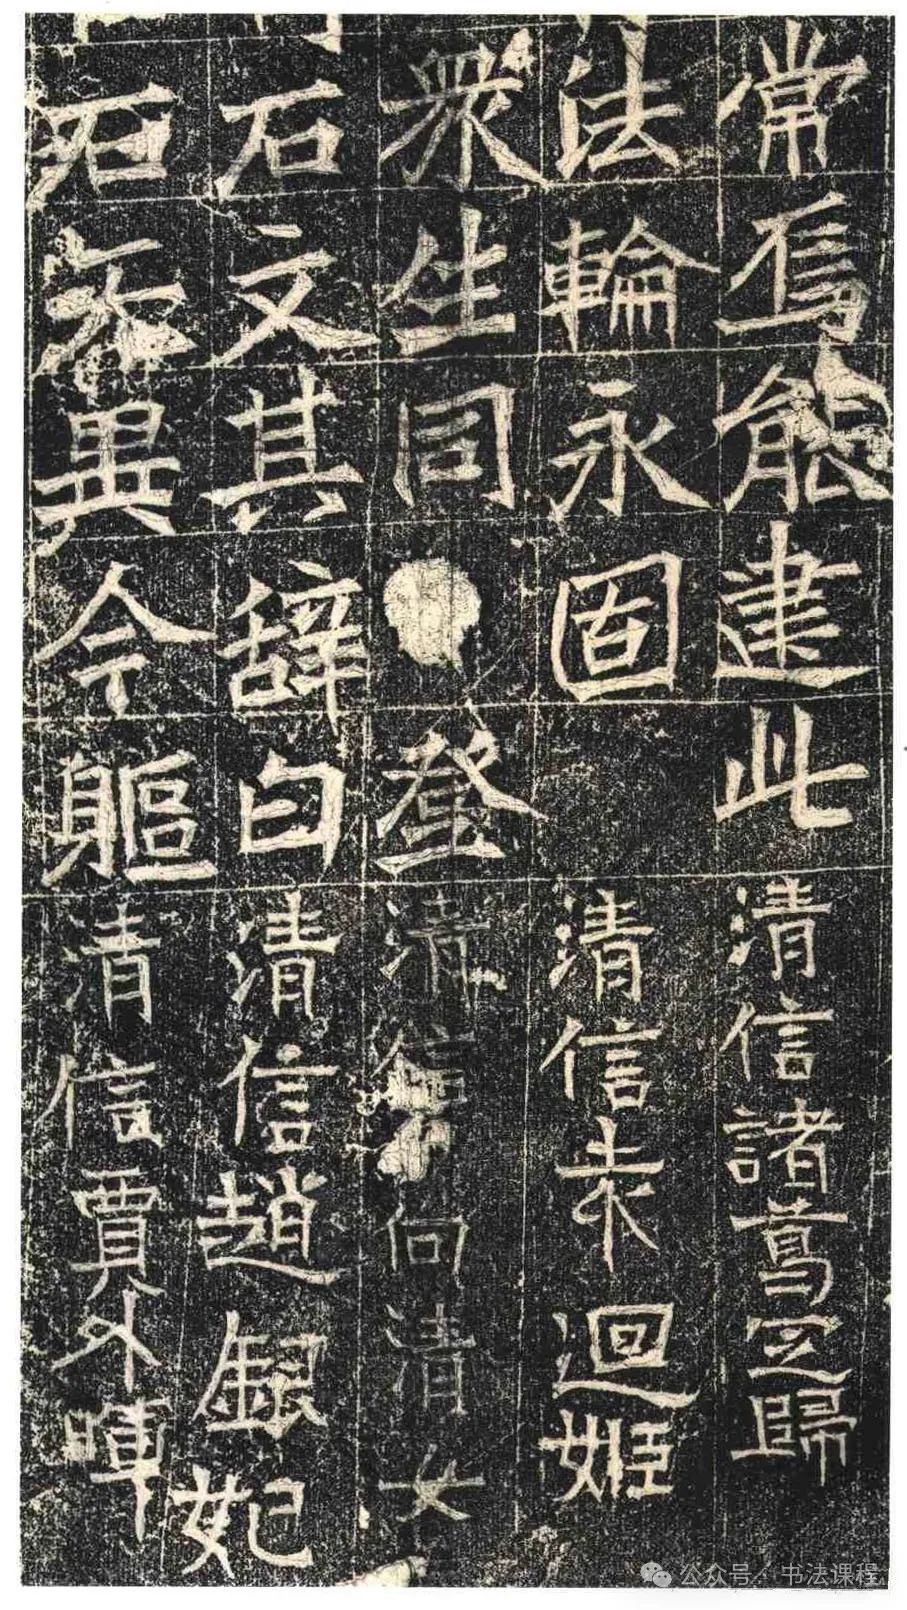 常焉能建此清信諸葛歸
法輪永固清信袁迴姬
衆生同登清信向清女
石文其辭曰清信趙銀妃
異今軀清信賈外暉
公众号 · 书法课程